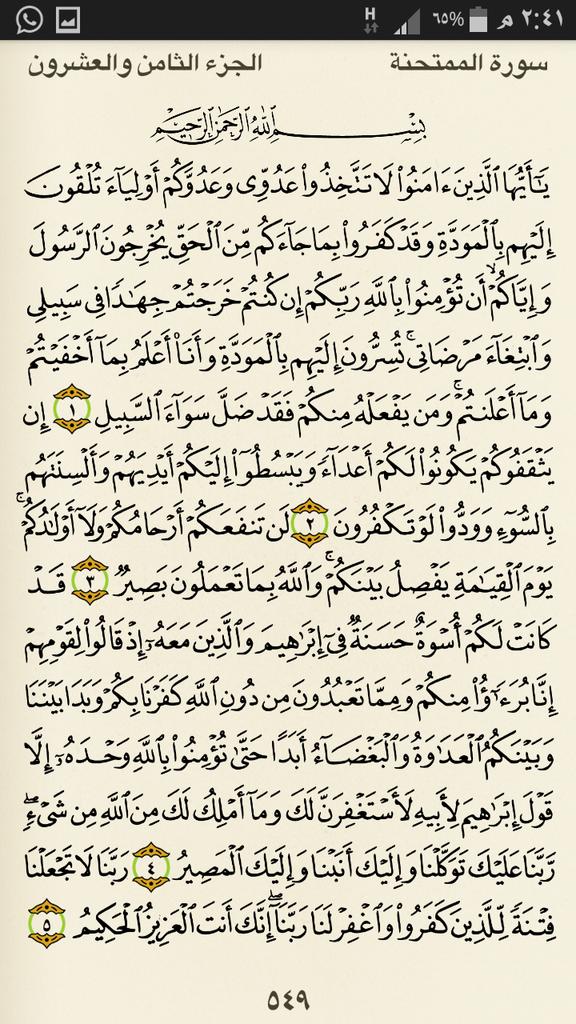 ٢:٤١ م ٦٥% H
سورة الممتحنة الجزء الثامن والعشرون
بِسْمِ ٱللَّهِ ٱلرَّحْمَٰنِ ٱلرَّحِيمِ
يَٰٓأَيُّهَا ٱلَّذِينَ ءَامَنُوا۟ لَا تَتَّخِذُوا۟ عَدُوِّى وَعَدُوَّكُمْ أَوْلِيَآءَ تُلْقُونَ
إِلَيْهِم بِٱلْمَوَدَّةِ وَقَدْ كَفَرُوا۟ بِمَا جَآءَكُم مِّنَ ٱلْحَقِّ يُخْرِجُونَ ٱلرَّسُولَ
وَإِيَّاكُمْ ۙ أَن تُؤْمِنُوا۟ بِٱللَّهِ رَبِّكُمْ إِن كُنتُمْ خَرَجْتُمْ جِهَٰدًا فِى سَبِيلِى
وَٱبْتِغَآءَ مَرْضَاتِى ۚ تُسِرُّونَ إِلَيْهِم بِٱلْمَوَدَّةِ وَأَنَا۠ أَعْلَمُ بِمَآ أَخْفَيْتُمْ
وَمَآ أَعْلَنتُمْ ۚ وَمَن يَفْعَلْهُ مِنكُمْ فَقَدْ ضَلَّ سَوَآءَ ٱلسَّبِيلِ ١ إِن
يَثْقَفُوكُمْ يَكُونُوا۟ لَكُمْ أَعْدَآءً وَيَبْسُطُوٓا۟ إِلَيْكُمْ أَيْدِيَهُمْ وَأَلْسِنَتَهُم
بِٱلسُّوٓءِ وَوَدُّوا۟ لَوْ تَكْفُرُونَ ٢ لَن تَنفَعَكُمْ أَرْحَامُكُمْ وَلَآ أَوْلَٰدُكُمْ ۚ
يَوْمَ ٱلْقِيَٰمَةِ يَفْصِلُ بَيْنَكُمْ ۚ وَٱللَّهُ بِمَا تَعْمَلُونَ بَصِيرٌ ٣ قَدْ
كَانَتْ لَكُمْ أُسْوَةٌ حَسَنَةٌ فِىٓ إِبْرَٰهِيمَ وَٱلَّذِينَ مَعَهُۥٓ إِذْ قَالُوا۟ لِقَوْمِهِمْ
إِنَّا بُرَءَٰٓؤُا۟ مِنكُمْ وَمِمَّا تَعْبُدُونَ مِن دُونِ ٱللَّهِ كَفَرْنَا بِكُمْ وَبَدَا بَيْنَنَا
وَبَيْنَكُمُ ٱلْعَدَٰوَةُ وَٱلْبَغْضَآءُ أَبَدًا حَتَّىٰ تُؤْمِنُوا۟ بِٱللَّهِ وَحْدَهُۥٓ إِلَّا
قَوْلَ إِبْرَٰهِيمَ لِأَبِيهِ لَأَسْتَغْفِرَنَّ لَكَ وَمَآ أَمْلِكُ لَكَ مِنَ ٱللَّهِ مِن شَىْءٍ ۖ
رَّبَّنَا عَلَيْكَ تَوَكَّلْنَا وَإِلَيْكَ أَنَبْنَا وَإِلَيْكَ ٱلْمَصِيرُ ٤ رَبَّنَا لَا تَجْعَلْنَا
فِتْنَةً لِّلَّذِينَ كَفَرُوا۟ وَٱغْفِرْ لَنَا رَبَّنَآ ۖ إِنَّكَ أَنتَ ٱلْعَزِيزُ ٱلْحَكِيمُ ٥
٥٤٩